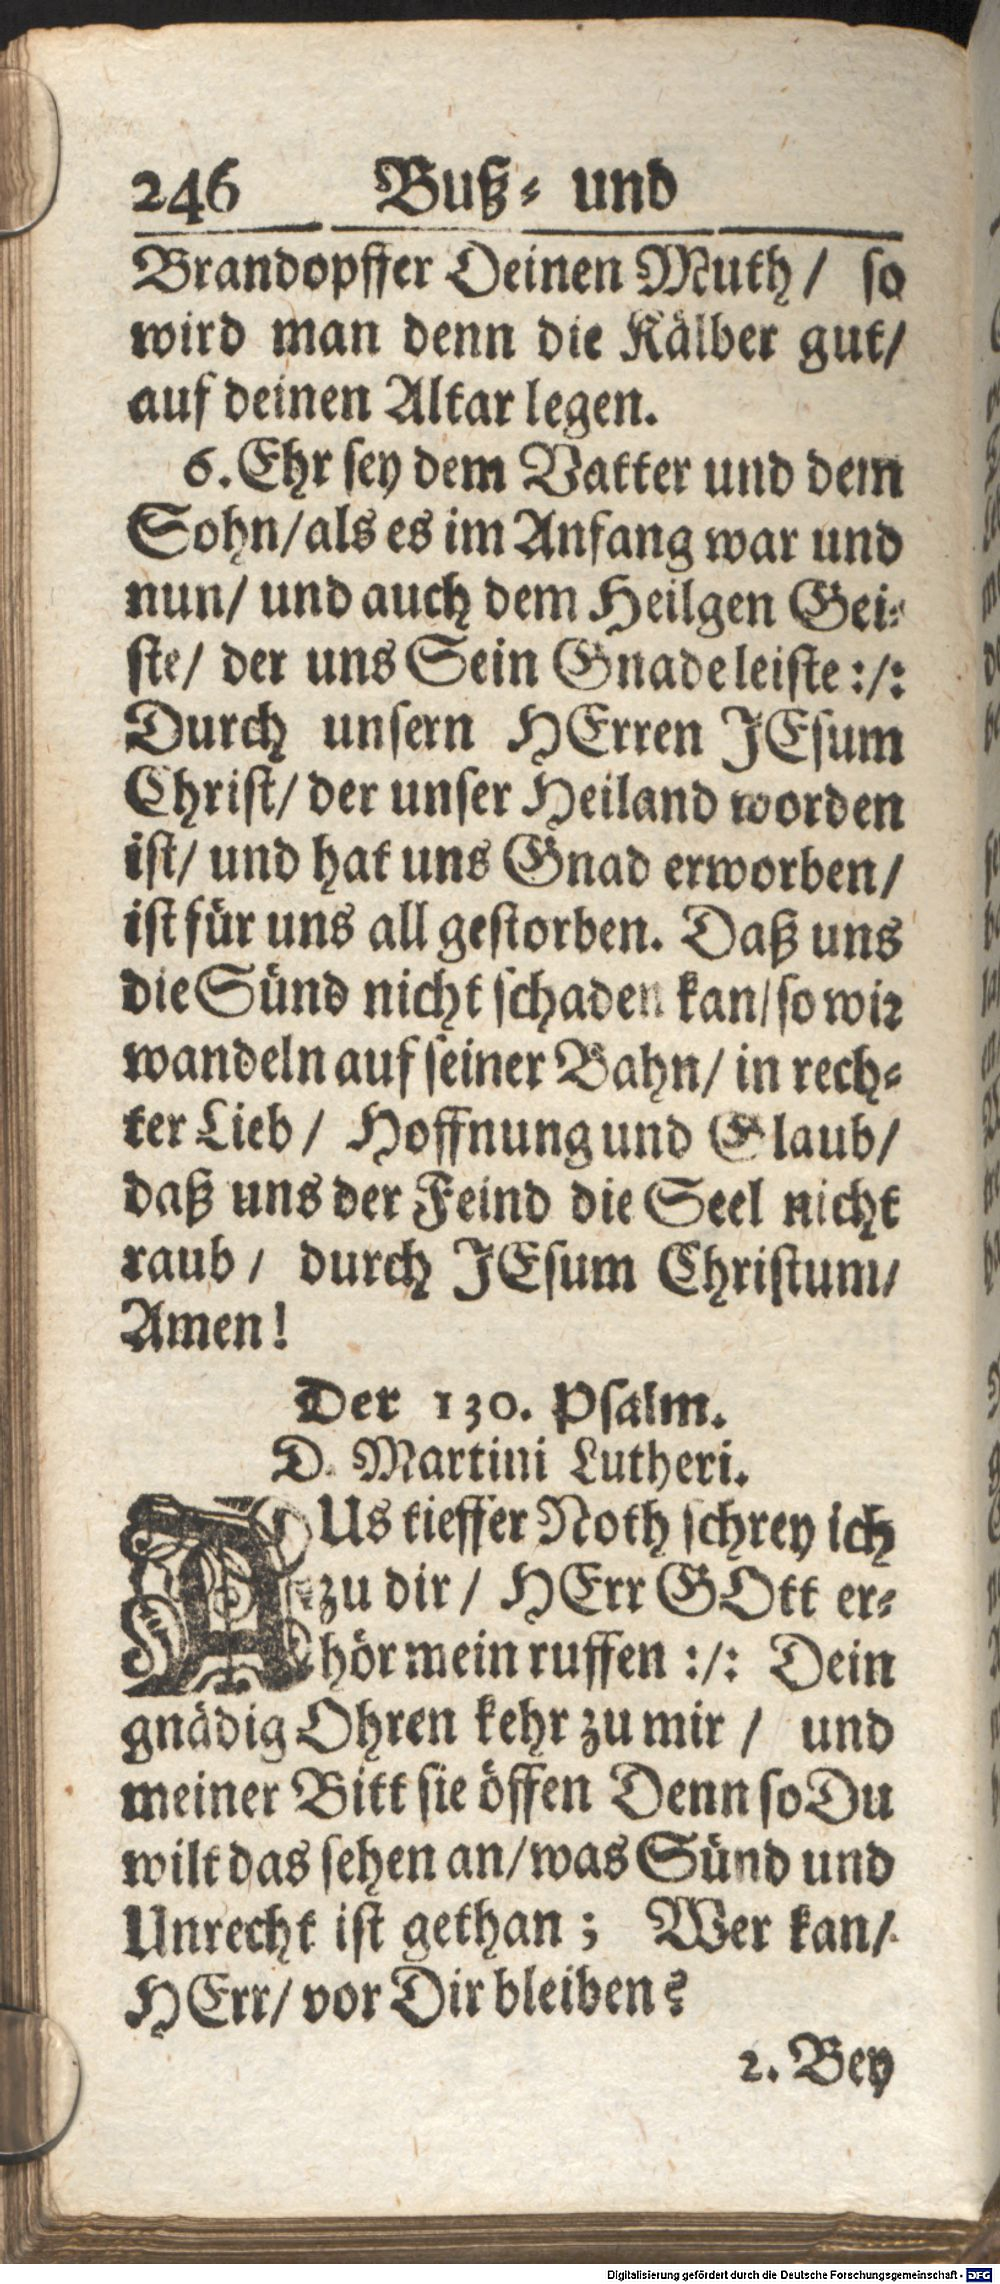 246 Buß- und
Brandopffer Deinen Muth/ so
wird man denn die Kälber gut/
auf deinen Altar legen.
6. Ehr sey dem Vatter und dem
Sohn/als es im Anfang war und
nun/ und auch dem Heilgen Gei-
ste/ der uns Sein Gnade leiste :/:
Durch unsern HErren JEsum
Christ/ der unser Heiland worden
ist/ und hat uns Gnad erworben/
ist für uns all gestorben. Daß uns
die Sünd nicht schaden kan/so wir
wandeln auf seiner Bahn/ in rech-
ter Lieb/ Hoffnung und Glaub/
daß uns der Feind die Seel nicht
raub/ durch JEsum Christum/
Amen!
Der 130. Psalm.
D. Martini Lutheri.
AUs tieffer Noth schrey ich
zu dir/ HErr GOtt er-
hör mein ruffen :/: Dein
gnädig Ohren kehr zu mir/ und
meiner Bitt sie öffen Denn so Du
wilt das sehen an/was Sünd und
Unrecht ist gethan; Wer kan/
HErr/ vor Dir bleiben?
2. Bey
Digitalisierung gefördert durch die Deutsche Forschungsgemeinschaft - DFG